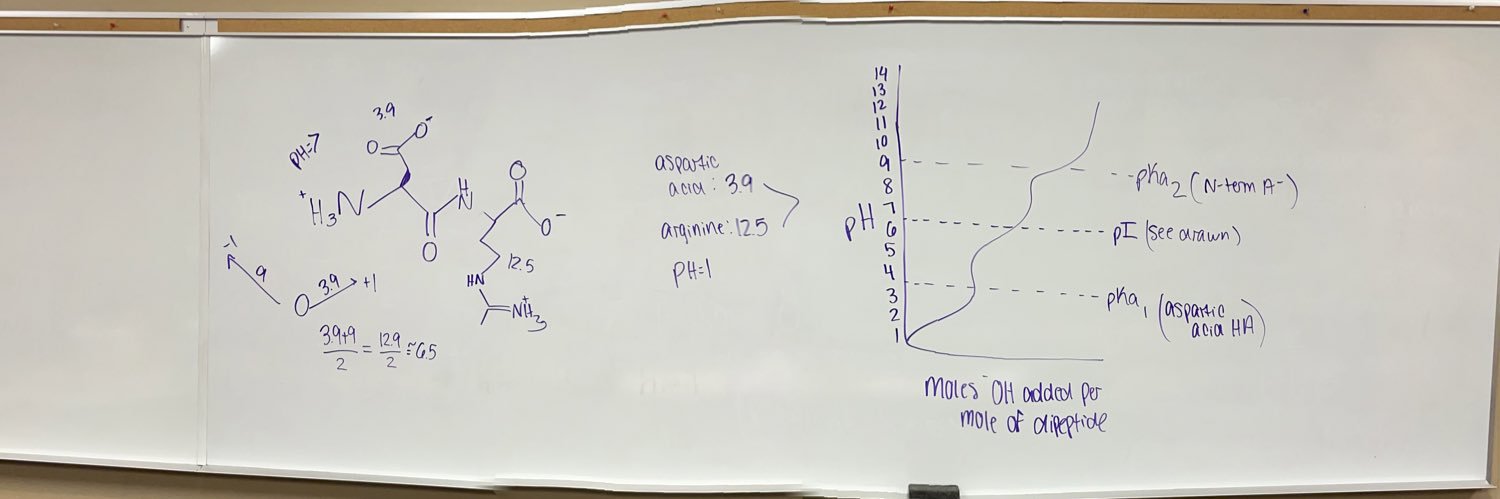 pH=7
3.9
O
O⁻
⁺H₃N
H
N
O
O
O⁻
12.5
HN
NH₃⁺
-1
9
O
3.9
+1
3.9+9 / 2 = 12.9 / 2 ≅ 6.5
aspartic
acid: 3.9
arginine: 12.5
pH=1
pH
14
13
12
11
10
9
8
7
6
5
4
3
2
1
pKa₂ (N-term A⁻)
pI (see drawn)
pKa₁ (aspartic
acid HA)
moles ⁻OH added per
mole of dipeptide